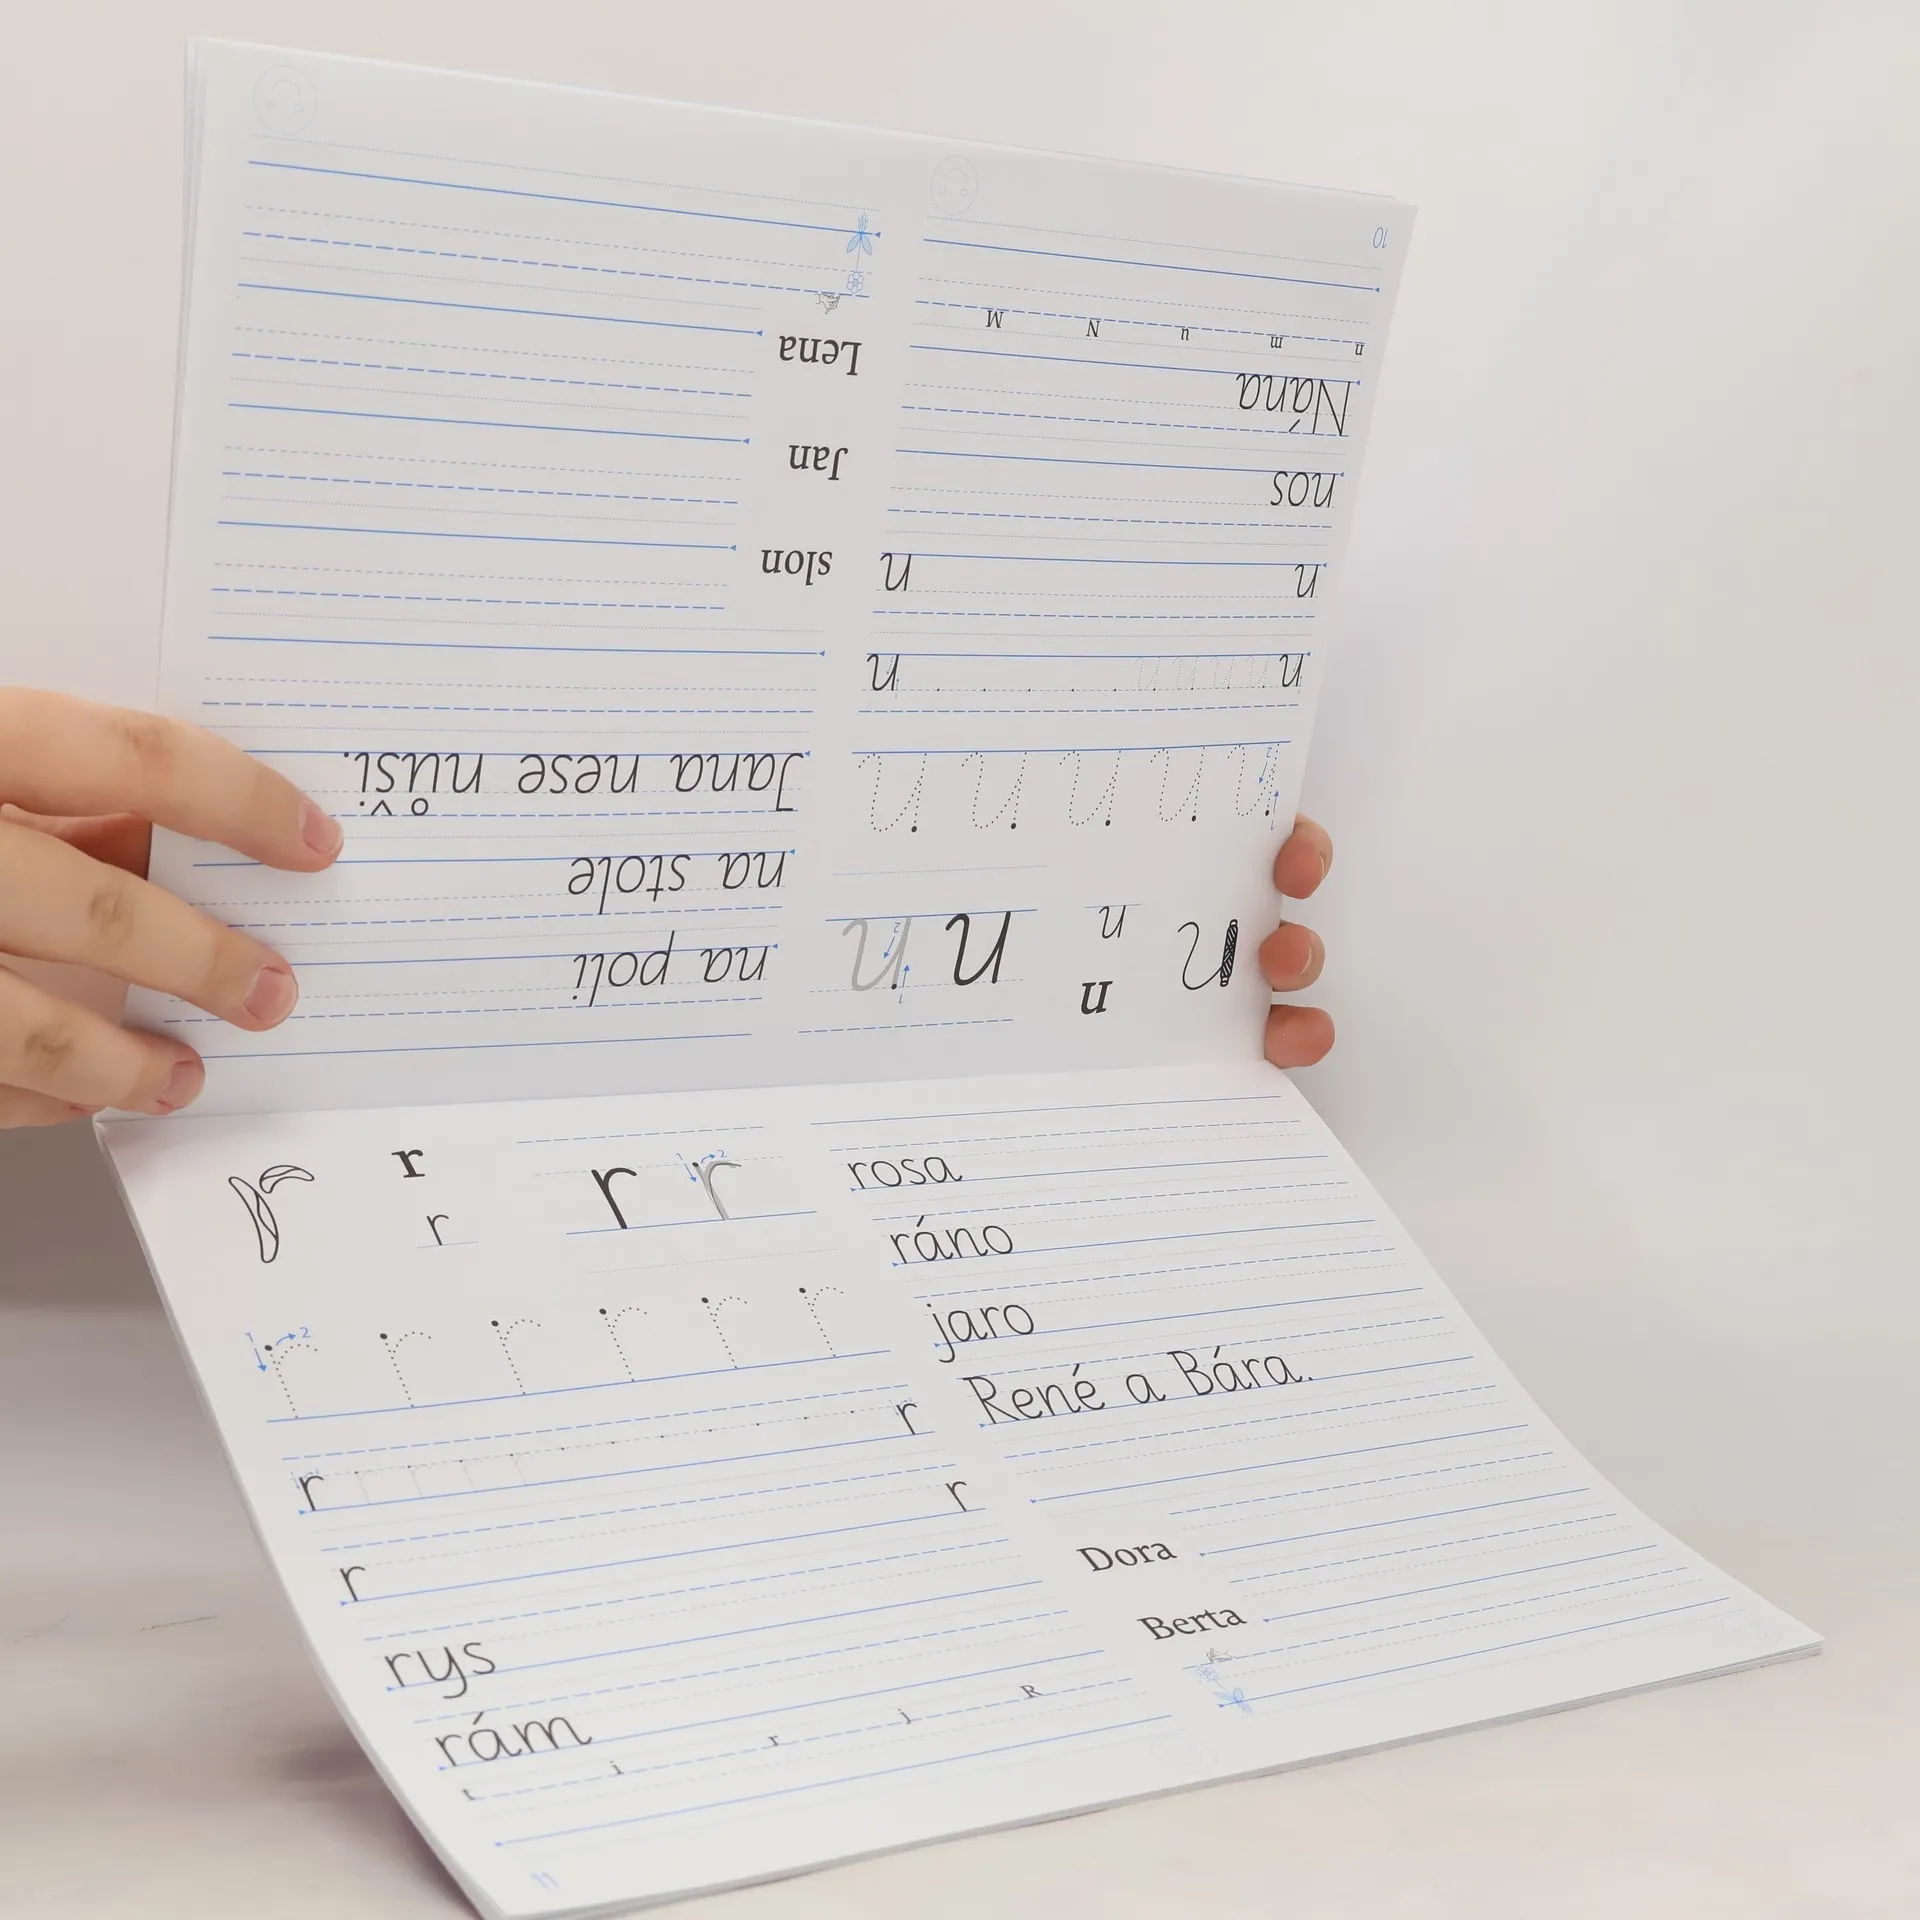 n n n n
n
n n n n n
n n n n n n n
n n
nos
Nána
n m u N M
10
na poli
na stole
Jana nese nůši.
slon
Jan
Lena
r r r r
r
1 2
r r r r r r
1 2
r r r r r r
r r
rys
rám
t i r j R
11
rosa
ráno
jaro
René a Bára.
Dora
Berta